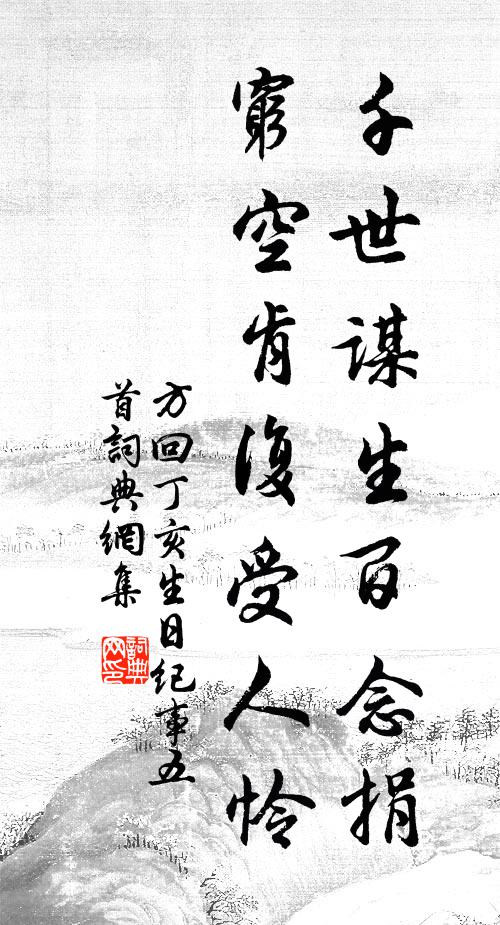 千世謀生百念捐
窮空肯復受人怜
方回丁亥生日纪事五
首詞典網集
詞典
网印